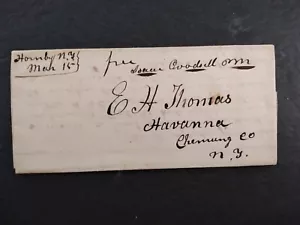 Hornby N.Y
Mar 15
free
Isaac Goodsell PM
E H Thomas
Havanna
Chemung Co
N.Y.